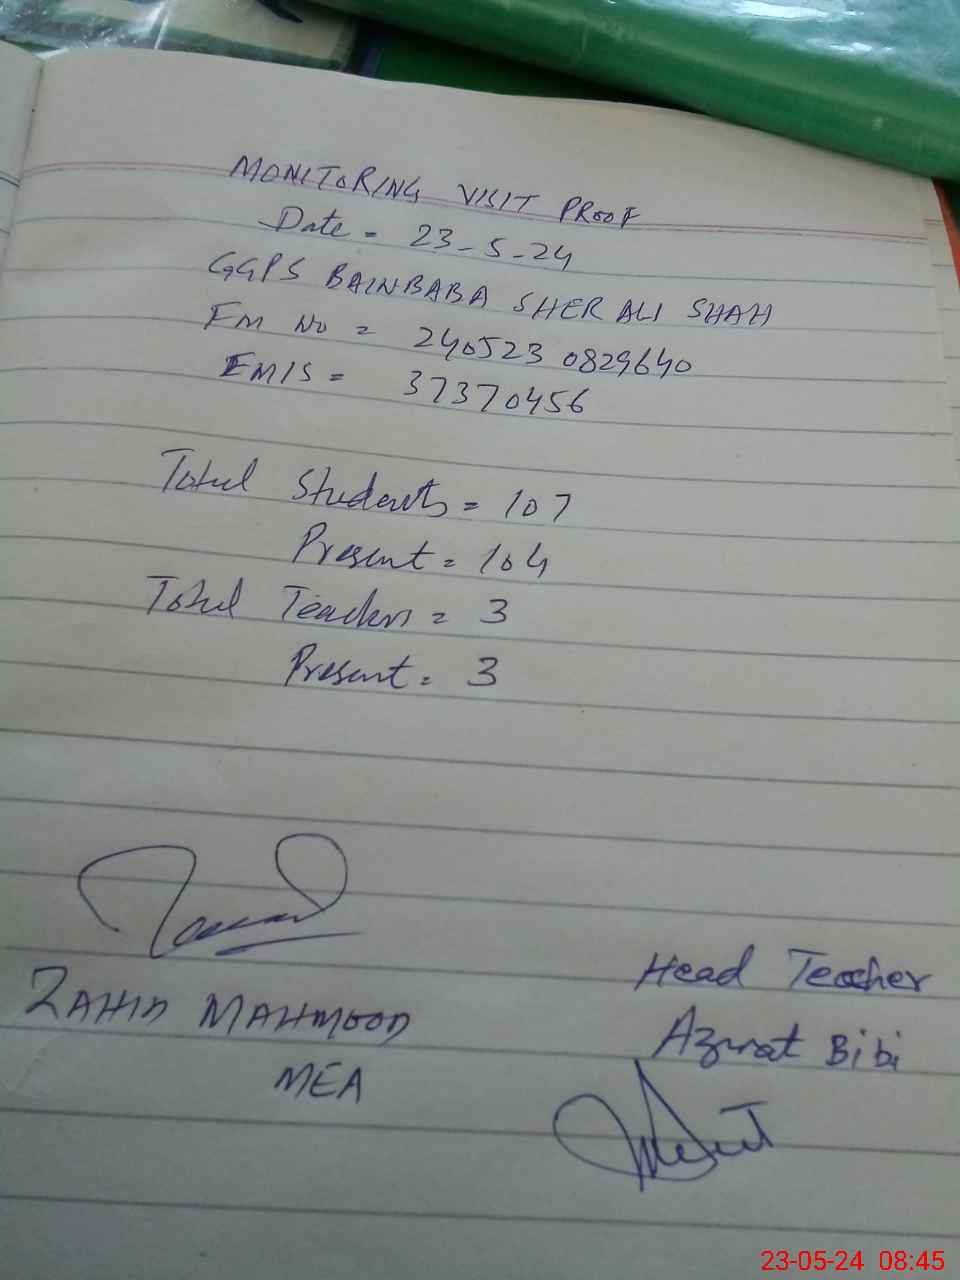 MONITORING VISIT PROOF
Date = 23-5-24
GGPS BAINBABA SHER ALI SHAH
EM NO = 2405230829640
EMIS = 37370456
Total Students = 107
Present = 104
Total Teachers = 3
Present = 3
ZAHID MAHMOOD
MEA
Head Teacher
Azmat Bibi
23-05-24 08:45